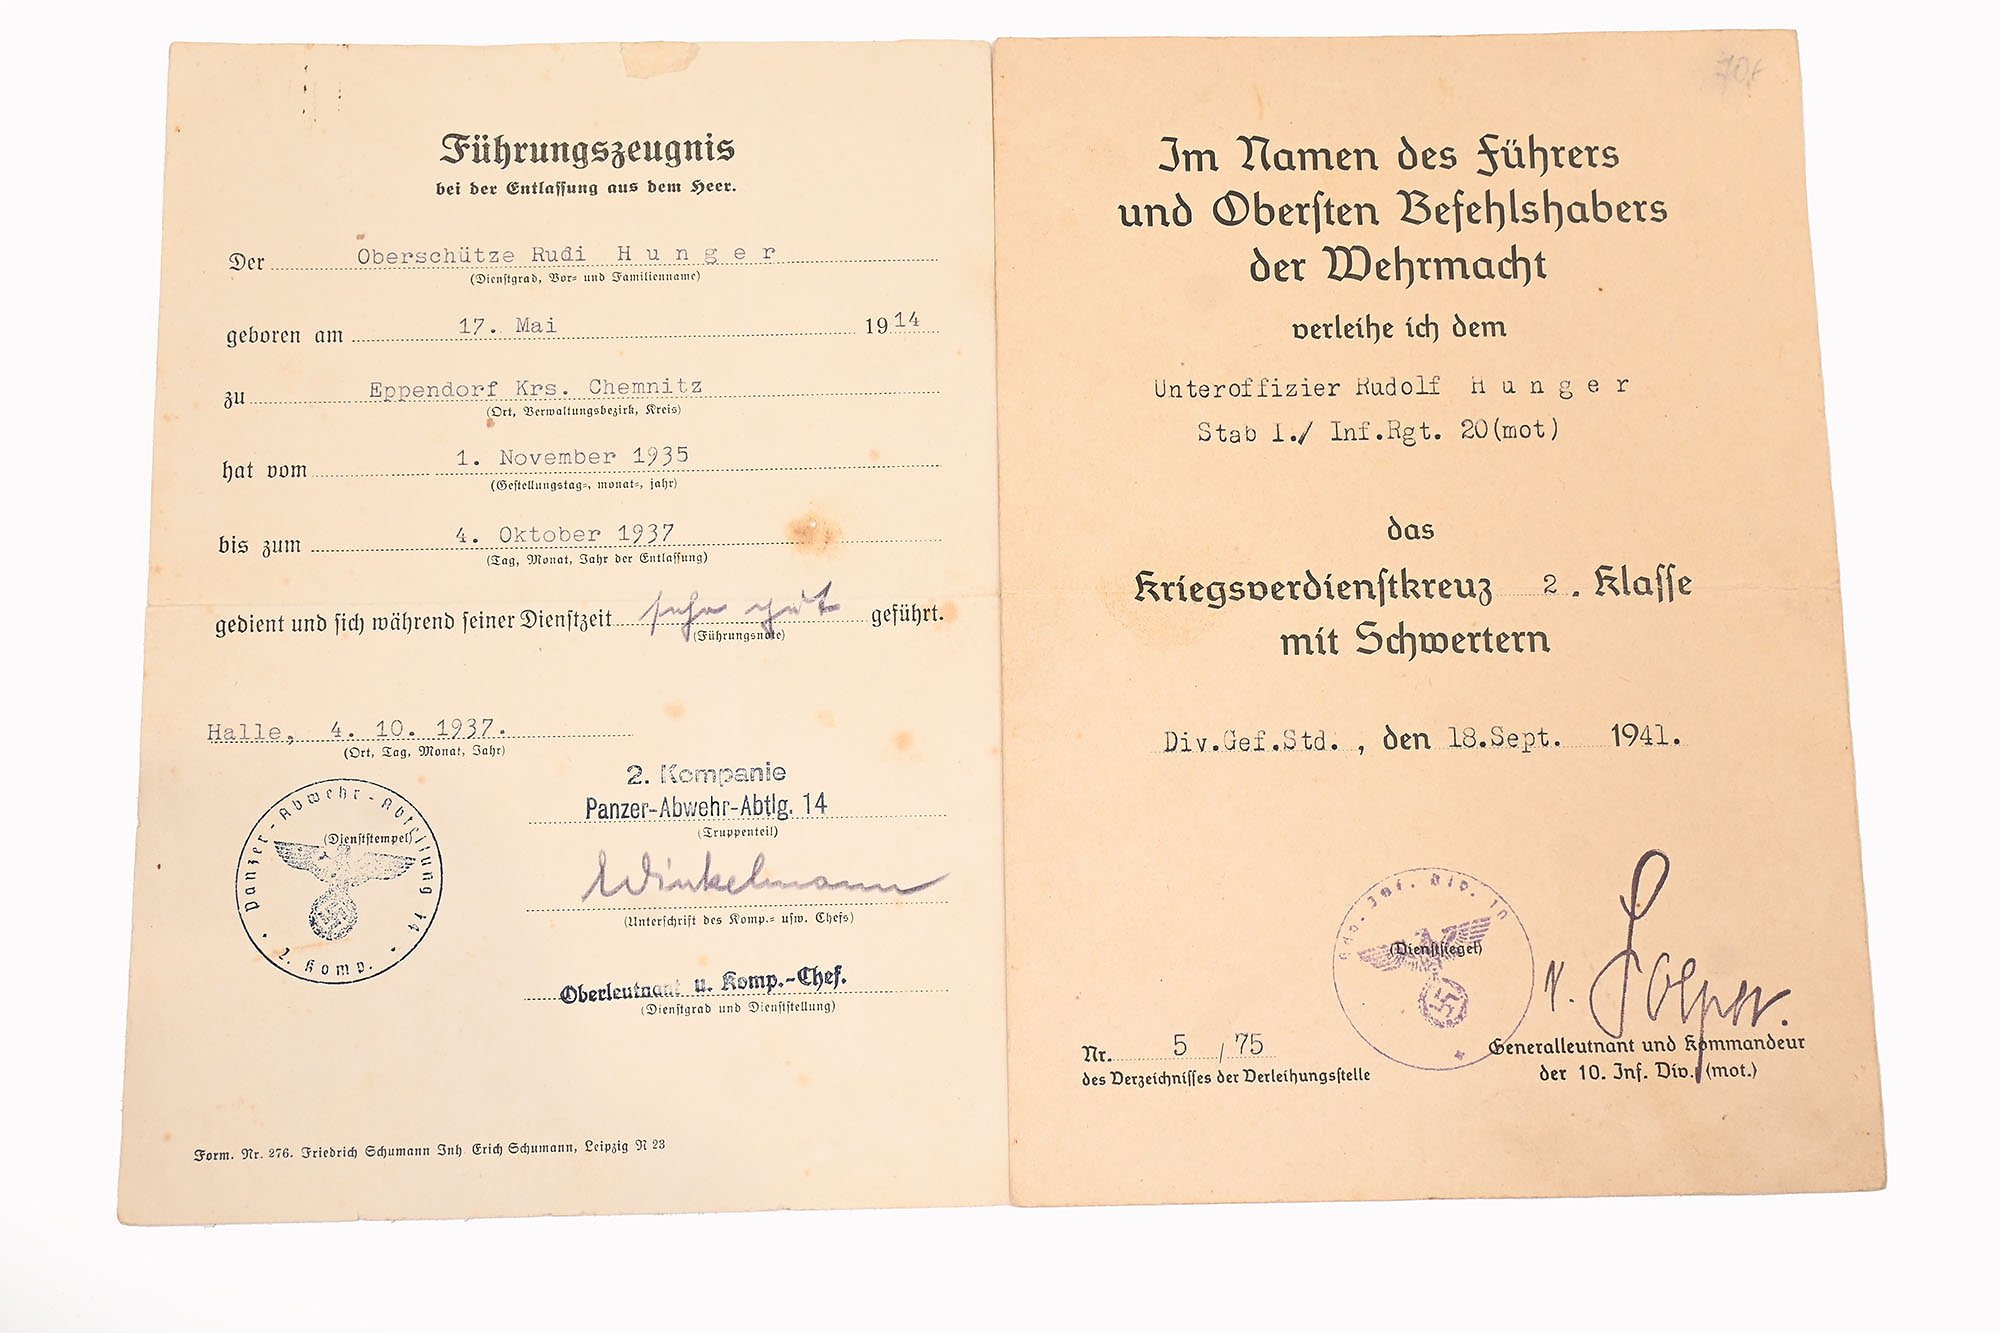 Führungszeugnis
bei der Entlassung aus dem Heer.
Der Oberschütze Rudi Hunger
(Dienstgrad, Vor- und Familienname)
geboren am 17. Mai 1914
zu Eppendorf Krs. Chemnitz
(Ort, Verwaltungsbezirk, Kreis)
hat vom 1. November 1935
(Gestellungstag-, monat-, jahr)
bis zum 4. Oktober 1937
(Tag, Monat, Jahr der Entlassung)
gedient und sich während seiner Dienstzeit sehr gut geführt.
(Führungsnote)
Halle, 4. 10. 1937.
(Ort, Tag, Monat, Jahr)
2. Kompanie
Panzer-Abwehr-Abtlg. 14
(Truppenteil)
Panzer-Abwehr-Abteilung 14
(Dienststempel)
2. Komp.
Winkelmann
(Unterschrift des Komp.- usw. Chefs)
Oberleutnant u. Komp.-Chef.
(Dienstgrad und Dienststellung)
Form. Nr. 276. Friedrich Schumann Inh. Erich Schumann, Leipzig N 23
Im Namen des Führers
und Obersten Befehlshabers
der Wehrmacht
verleihe ich dem
Unteroffizier Rudolf Hunger
Stab I./ Inf.Rgt. 20(mot)
das
Kriegsverdienstkreuz 2. Klasse
mit Schwertern
Div.Gef.Std., den 18.Sept. 1941.
Inf. Div. 10
(Dienstsiegel)
v. Loeper.
Nr. 5 / 75
des Verzeichnisses der Verleihungsstelle
Generalleutnant und Kommandeur
der 10. Inf. Div. (mot.)